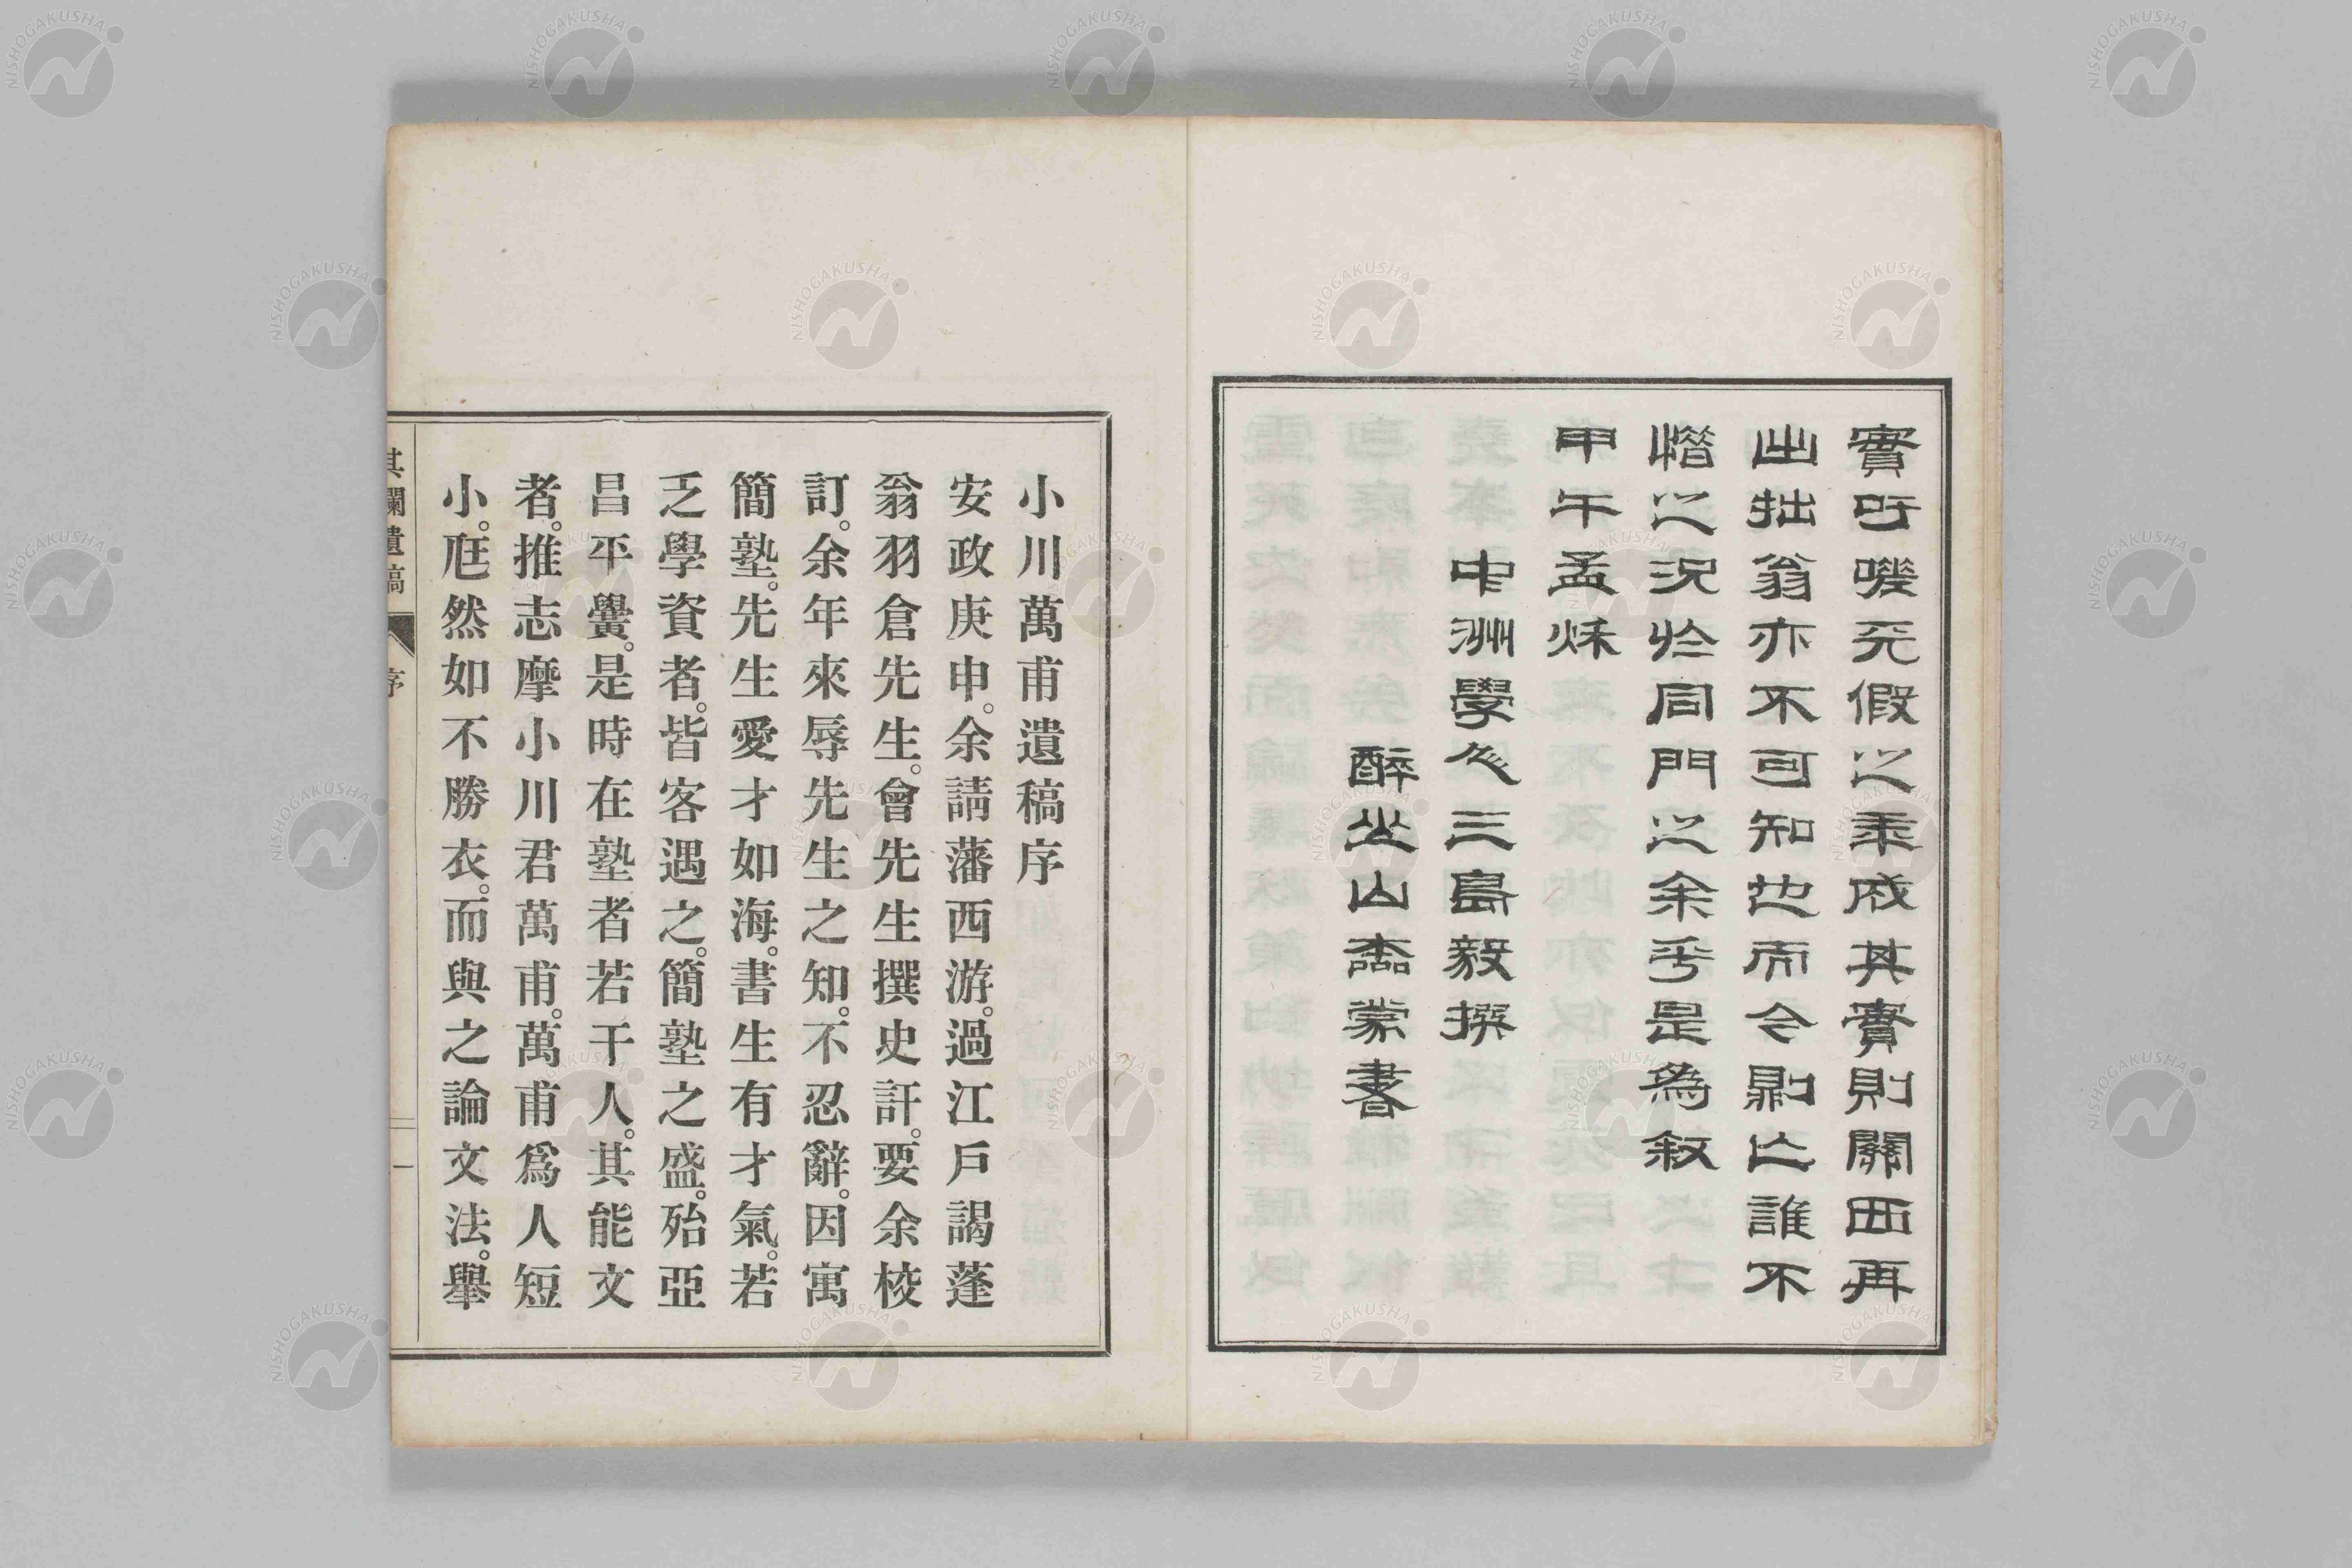 實吁嘆天假之年成其實則關西再
出拙翁亦不可知也而今則亡誰不
惜之況於同門之余乎是為叙
甲午孟秋
中洲學人三島毅撰
醉坐山樵蒙書
小川萬甫遺稿序
安政庚申。余請藩西游。過江戶謁蓬
翁羽倉先生。會先生撰史訐。要余校
訂。余年來辱先生之知。不忍辭。因寓
簡塾。先生愛才如海。書生有才氣。若
乏學資者。皆客遇之。簡塾之盛。殆亞
昌平黌。是時在塾者若干人。其能文
者。推志摩小川君萬甫。萬甫爲人短
小。尫然如不勝衣。而與之論文法。擧
其瀾遺稿
序
一
NISHOGAKUSHA